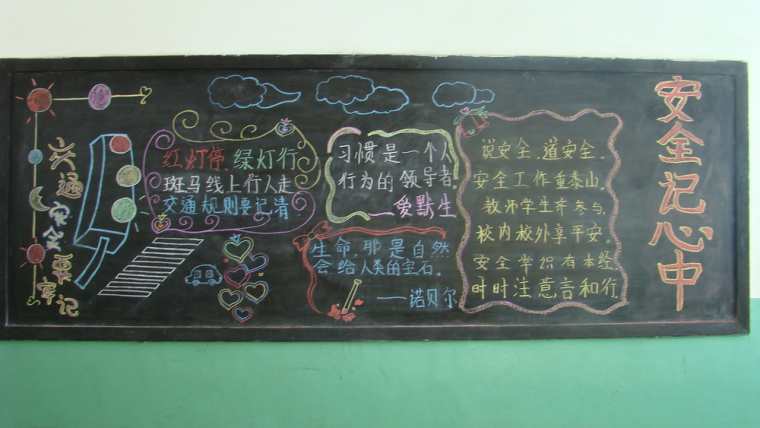 交通安全要牢记
红灯停,绿灯行
斑马线上行人走
交通规则要记清
习惯是一个人
行为的领导者。
——爱默生
生命,那是自然
会给人类的宝石。
——诺贝尔
说安全,道安全。
安全工作重泰山。
教师学生齐参与。
校内校外享平安。
安全常识有本经
时时注意言和行
安全记心中